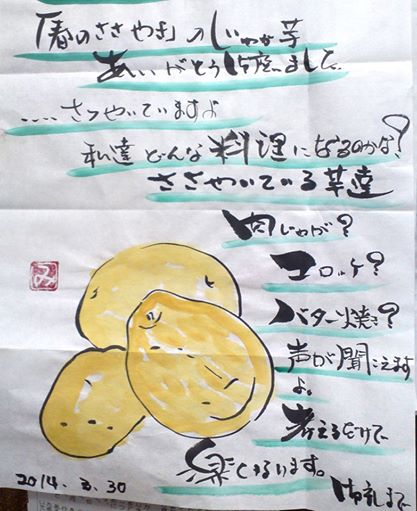 「春のささやき」のじゃが芋
ありがとう御座いました。
....ささやいていますよ
私達どんな料理になるのかな?
ささやいている芋達
肉じゃが?
コロッケ?
バター焼き?
声が聞こえます
よ。
考えるだけで
楽しくなります。
御礼まで
み
2014.3.30